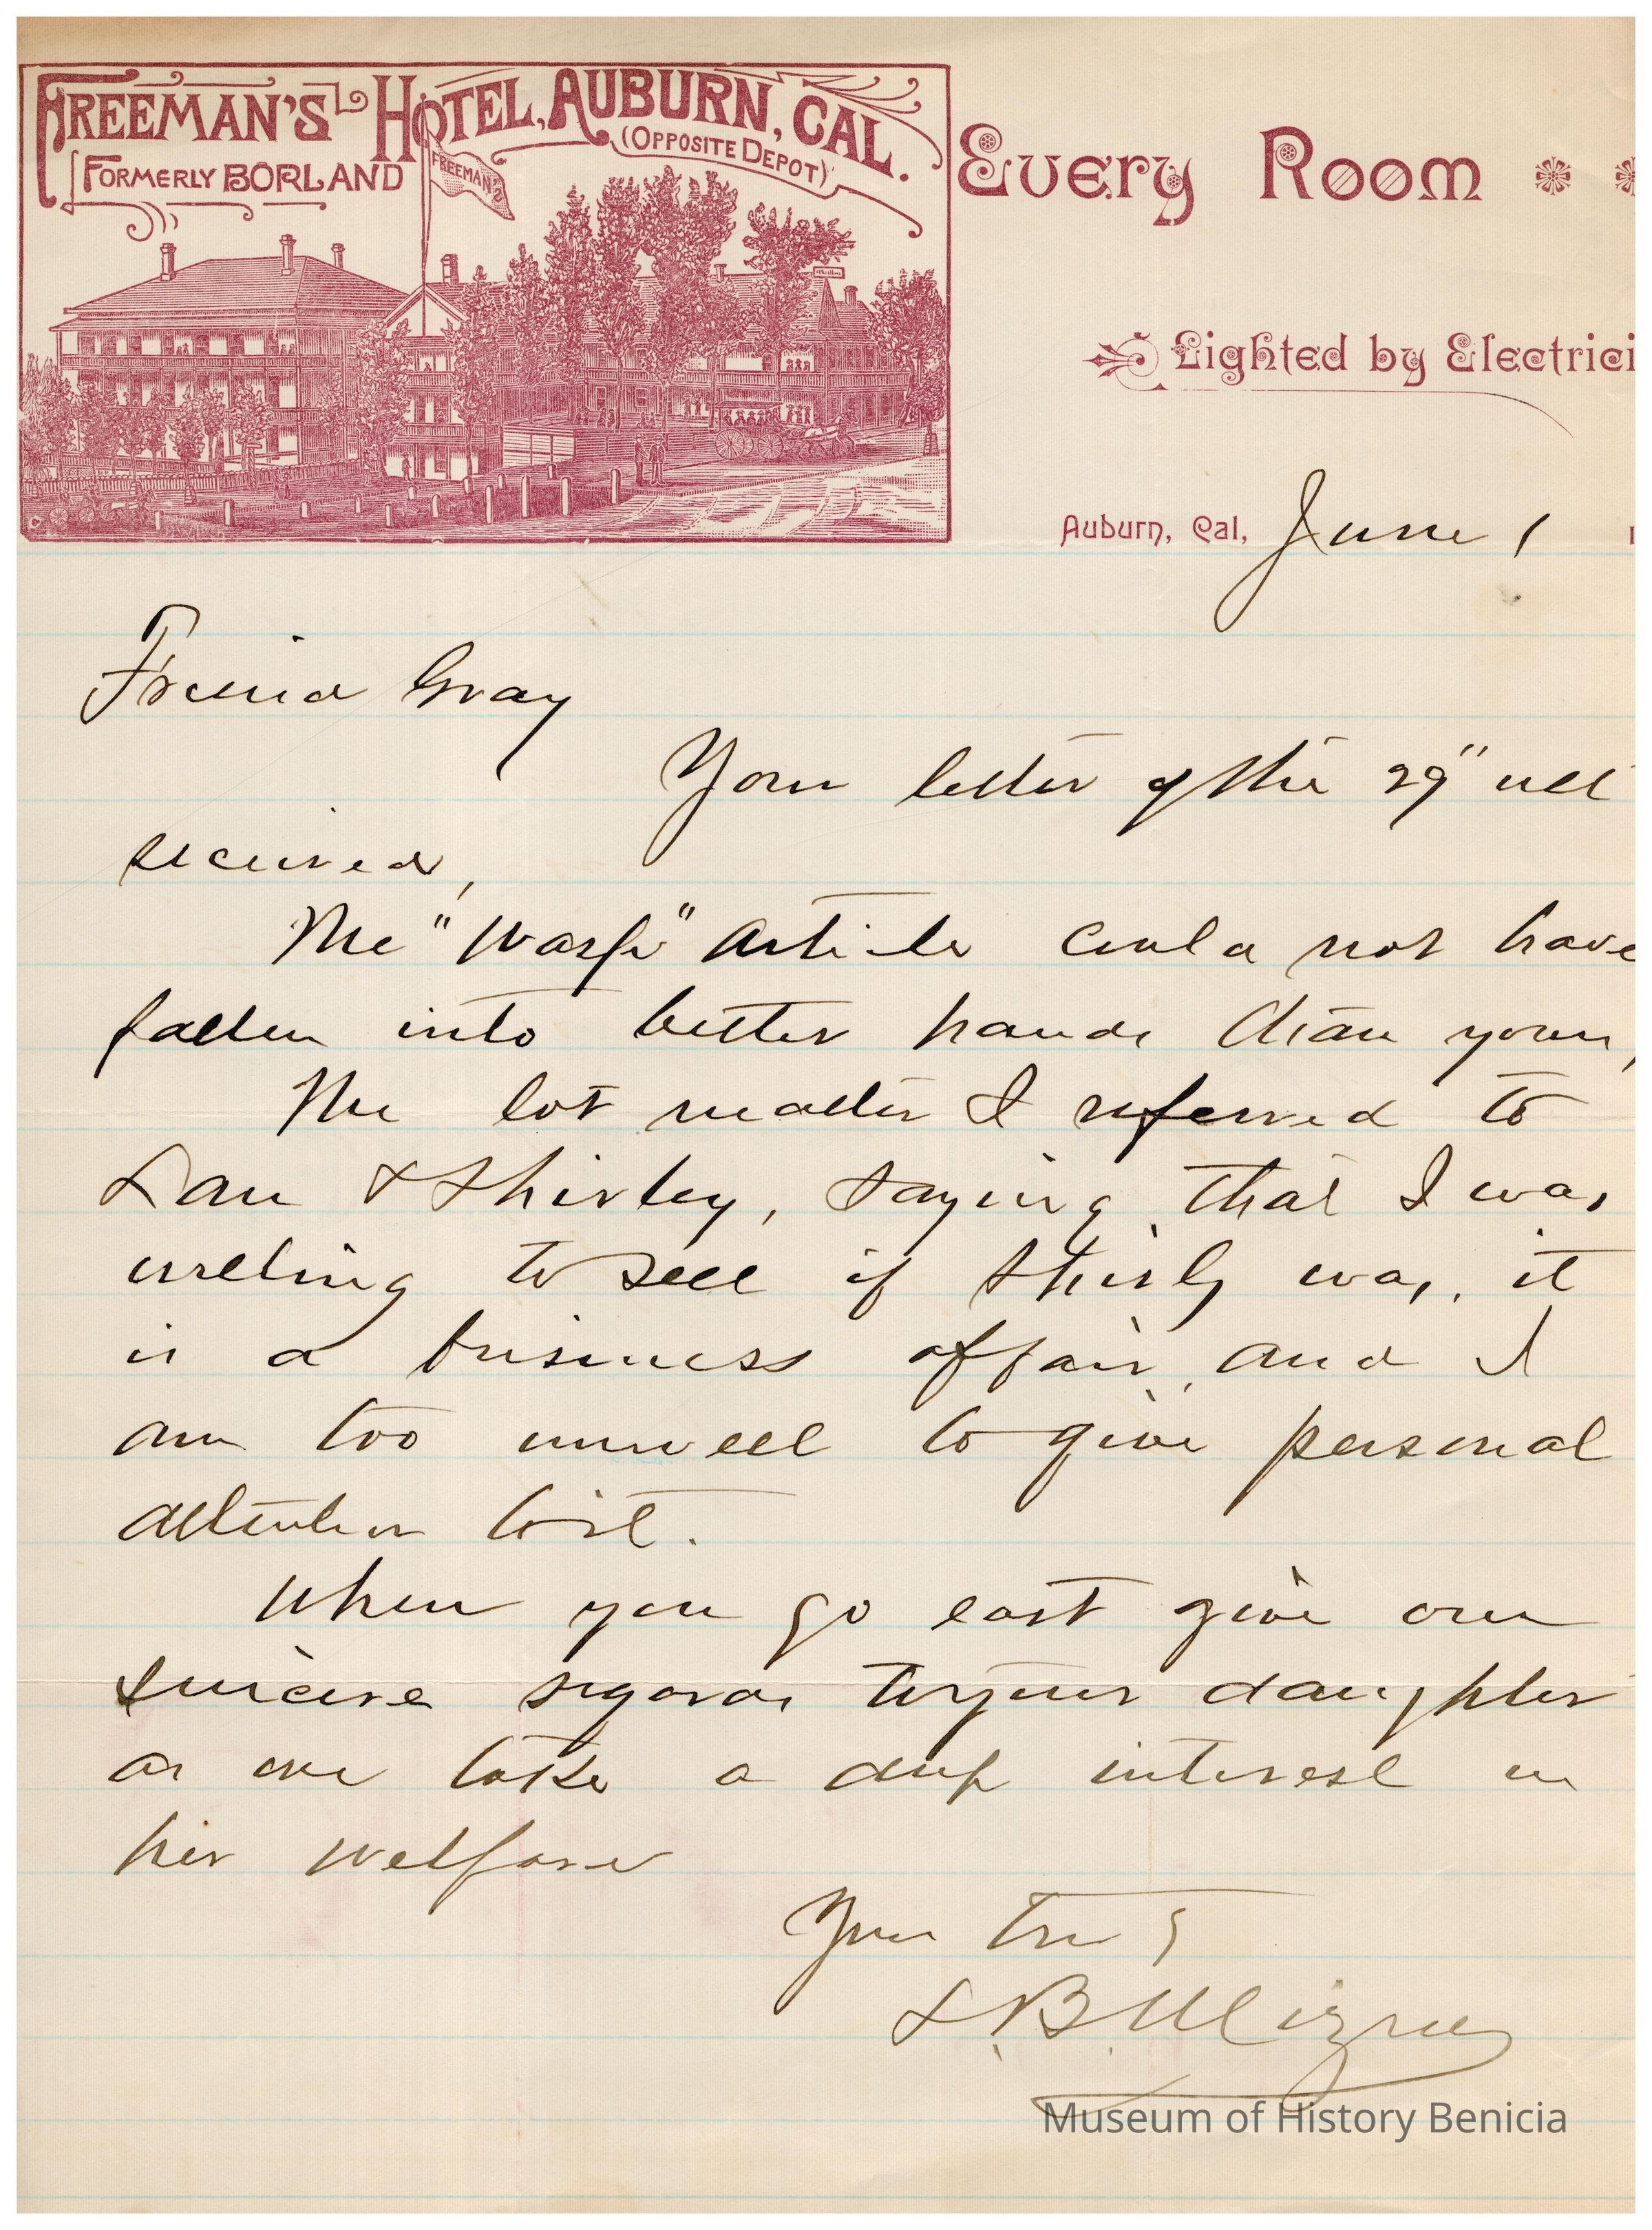 FREEMAN'S HOTEL, AUBURN, CAL.
(OPPOSITE DEPOT)
FORMERLY BORLAND
FREEMAN'S
Every Room
Lighted by Electrici
Auburn, Cal, June 1
Friend Gray
Your letter of the 29" ult
received,
The "Warf" article could not have
fallen into better hands than yours,
The lot matter I referred to
Lan & Shirley, saying that I was
willing to sell if Shirly was, it
is a business affair, and I
am too unwell to give personal
attention to it.
When you go east give our
sincere regards to your daughter
as we take a deep interest in
her welfare
Your Truly
L. B. Mizner
Museum of History Benicia